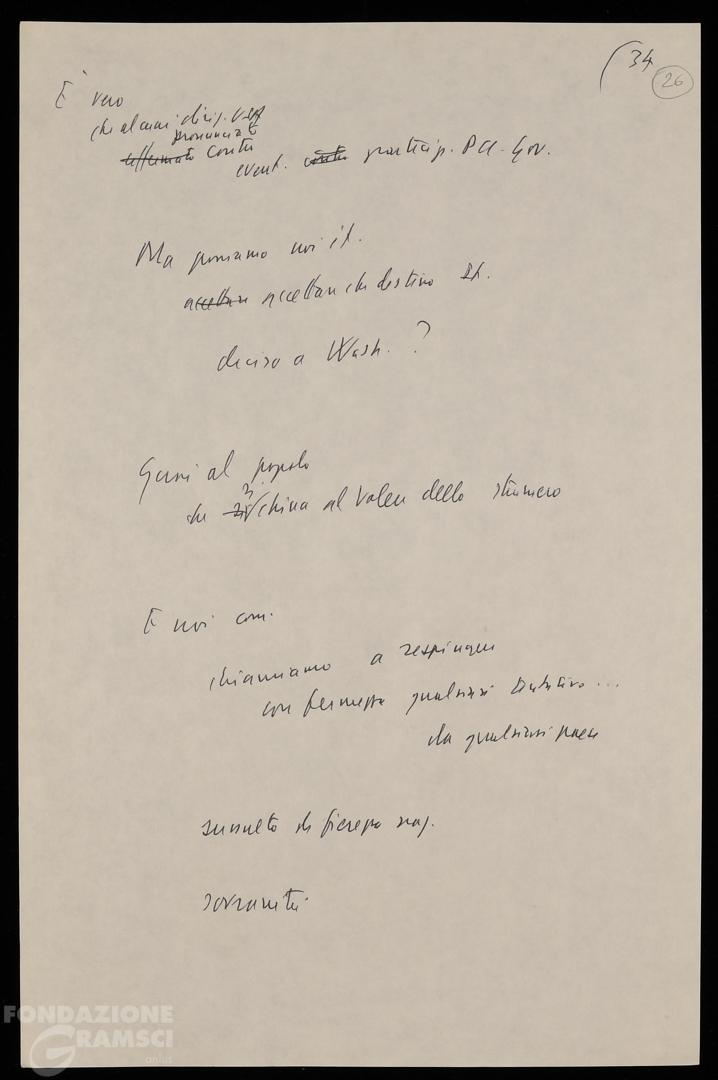 34
26
È vero
che alcuni dirig. USA
pronunciati
affermato contro
event. contro particip. PCI - Gov.
Ma possiamo noi it.
accettare accettare che destino It.
deciso a Wash. ?
Guai al popolo
che si china al volere dello straniero
E noi com.
chiamiamo a respingere
con fermezza qualsiasi tentativo ...
da qualsiasi paese
sussulto di fierezza naz.
sovranità
FONDAZIONE
GRAMSCI
onlus